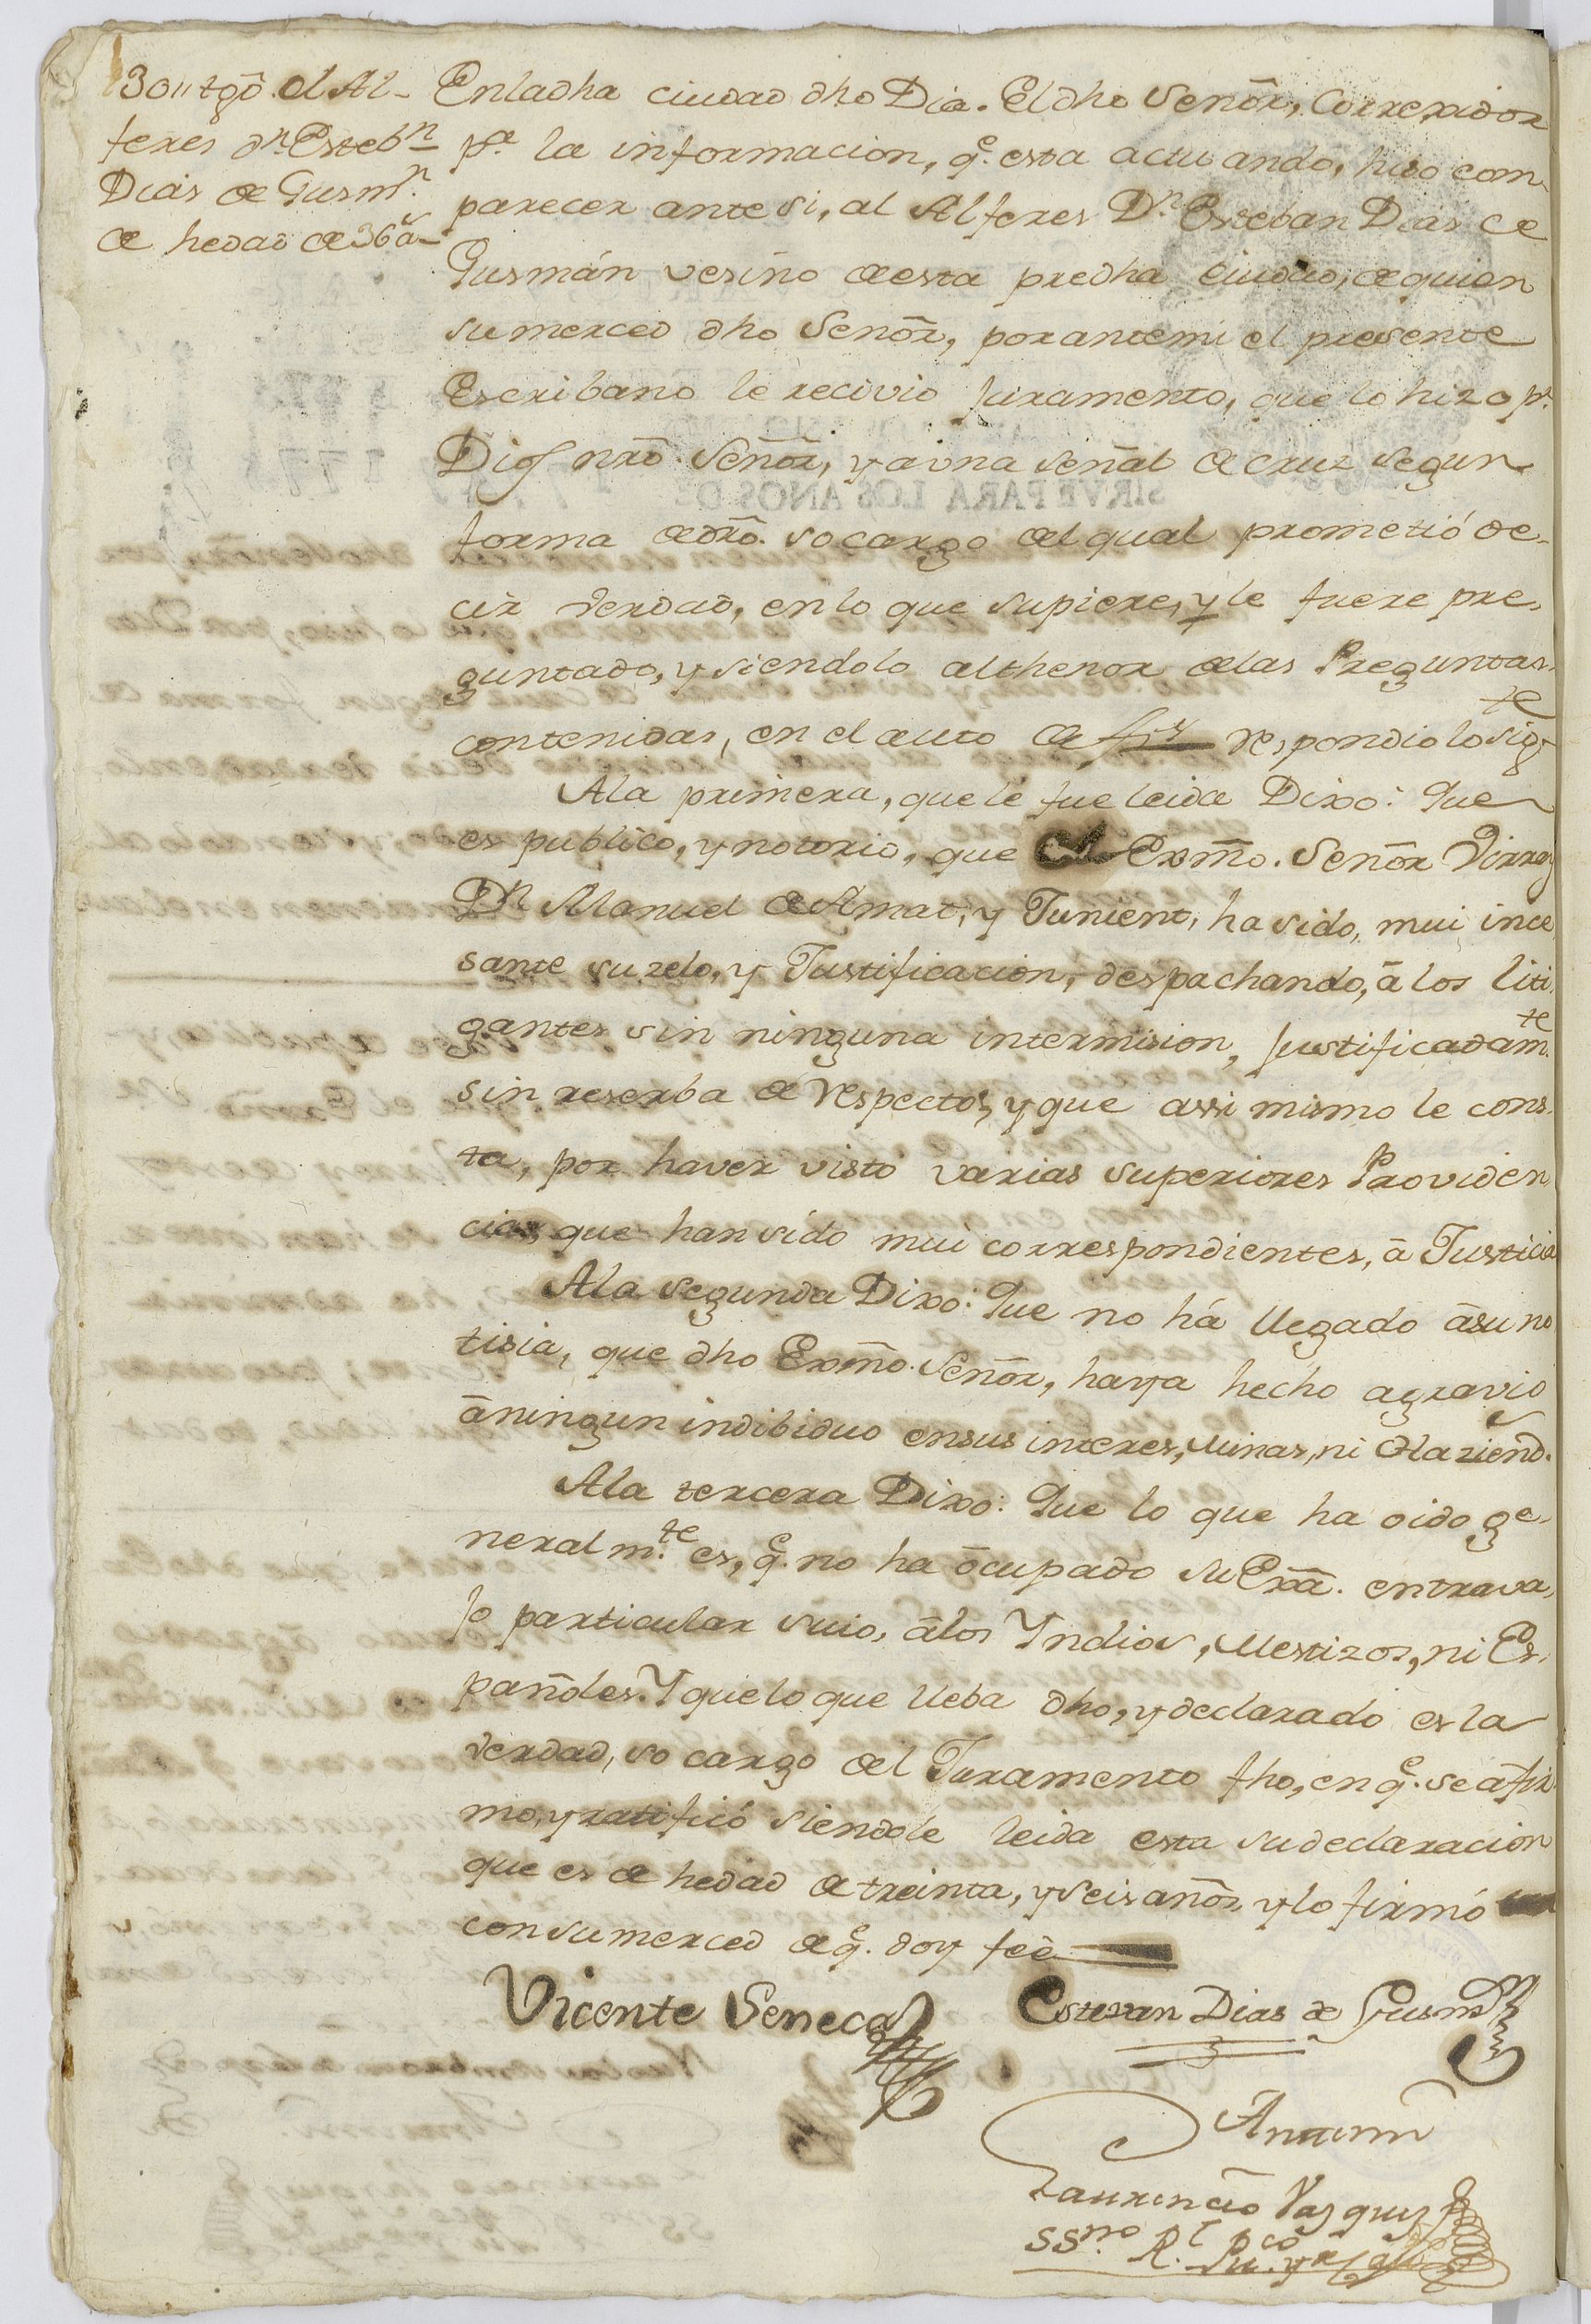 30 tgō. el Al-
feres dn. Estebn
Dias de Gusmn.
de hedad de 36 ā
En la dha ciudad dho Dia. El dho Señor, Correxidor
pa. la informacion, qe. esta actuando, hiso com-
parecer ante si, al Alferes Dn. Esteban Dias de
Gusmán vesino de esta predha ciudad, de quien
su merced dho Señor, por ante mi el presente
Escribano le recivio juramento, que lo hizo pr.
Dios nrō. Señor, y a una señal de cruz segun
forma de drō. so cargo del qual prometió de-
cir verdad, en lo que supiere, y le fuere pre-
guntado, y siendolo al thenor de las Preguntas
contenidas, en el auto de respondio lo sigte
A la primera, que le fue leida Dixo: Que
es publico, y notorio, que el Exmō. Señor Virrey
Dn Manuel de Amat, y Junient, ha sido, mui ince
sante su zelo, y Justificacion, despachando, ā los liti-
gantes sin ninguna intermision, justificadamte.
sin reserba de respectos, y que assi mismo le cons-
ta, por haver visto varias superiores Providen
cias, que han sido mui correspondientes, ā Justicia
A la segunda Dixo: Que no há llegado ā su no
tisia, que dho Exmō. Señor, haya hecho agravio
ā ningun indibiduo en sus interes, Minas, ni Haziend.
A la tercera Dixo: Que lo que ha oido ge-
neralmte. es, qe. no ha ōcupado su Exā. en trava-
jo particular suio, ā los Yndios, Mestizos, ni Es-
pañoles. Y que lo que lleba dho, y declarado es la
verdad, so cargo del Juramento fho, en qe. se āfir-
mo, y ratificó siendole leida esta su declaracion
que es de hedad de treinta, y seis años, y lo firmó
con su merced de qe. doy feè
Vicente Seneca
Estevan Dias de Gusmn
Ante mi
Laurencio Vasquez
SSno. Rl. Pu.co y